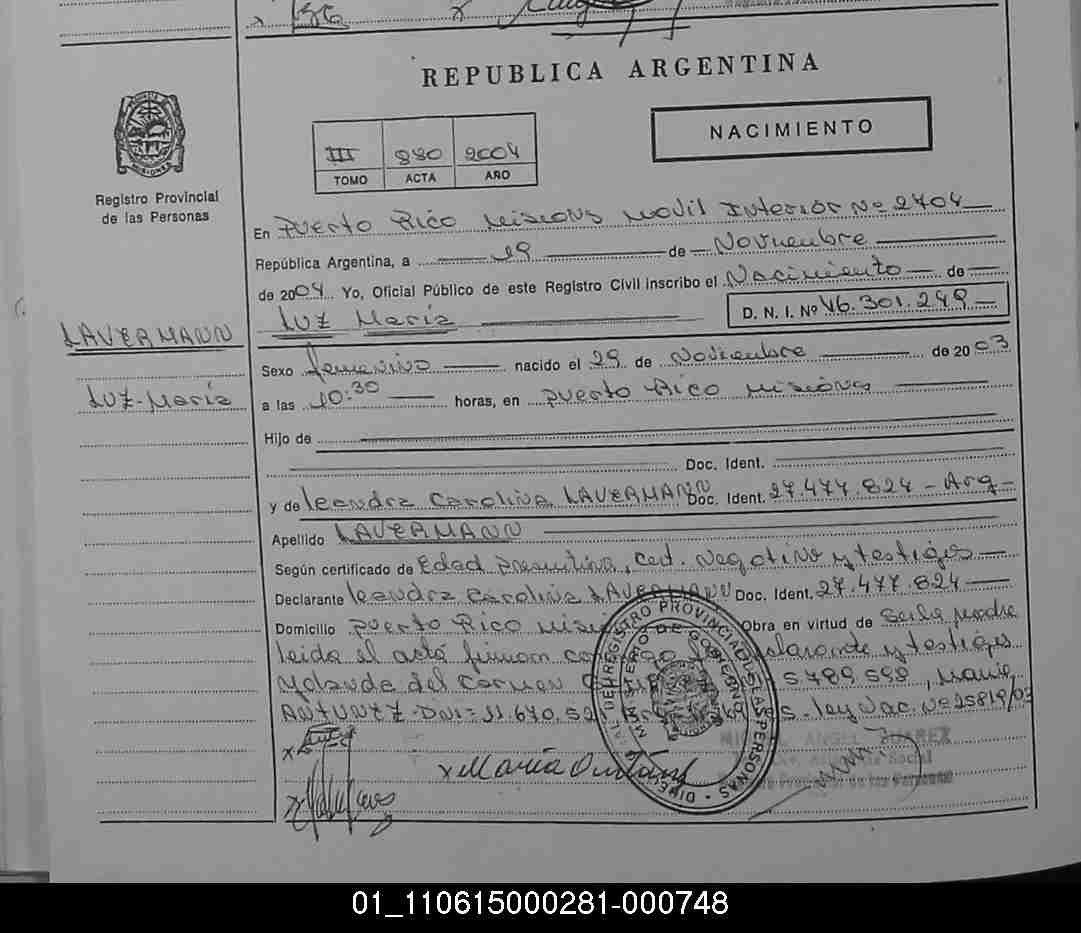 REPUBLICA ARGENTINA
NACIMIENTO
III 980 2004
TOMO ACTA AÑO
Registro Provincial
de las Personas
En Puerto Rico Misiones Movil Interior Nº 2704
República Argentina, a 19 de Noviembre
de 2004 Yo, Oficial Público de este Registro Civil inscribo el Nacimiento de
Luz María D. N. I. Nº 46.301.249
LAVERMANN
Luz María
Sexo femenino nacido el 29 de Noviembre de 2003
a las 10:30 horas, en Puerto Rico Misiones
Hijo de
Doc. Ident.
y de Leandra Carolina LAVERMANN Doc. Ident. 27.477.824 - Arg -
Apellido LAVERMANN
Según certificado de Edad Presuntiva, Cert. Negativo y testigos
Declarante Leandra Carolina LAVERMANN Doc. Ident. 27.477.824
Domicilio Puerto Rico Obra en virtud de Ser la Madre
Leída el acta firman y testigos
Yolanda del Carmen 5789598, María
ANTUNEZ - DNI = 11.670.52 Ley Nac. Nº 25819/03
x María
DIRECCION REGISTRO PROVINCIAL DE LAS PERSONAS
MINISTERIO DE GOBIERNO
ANGEL SUAREZ
01_110615000281-000748